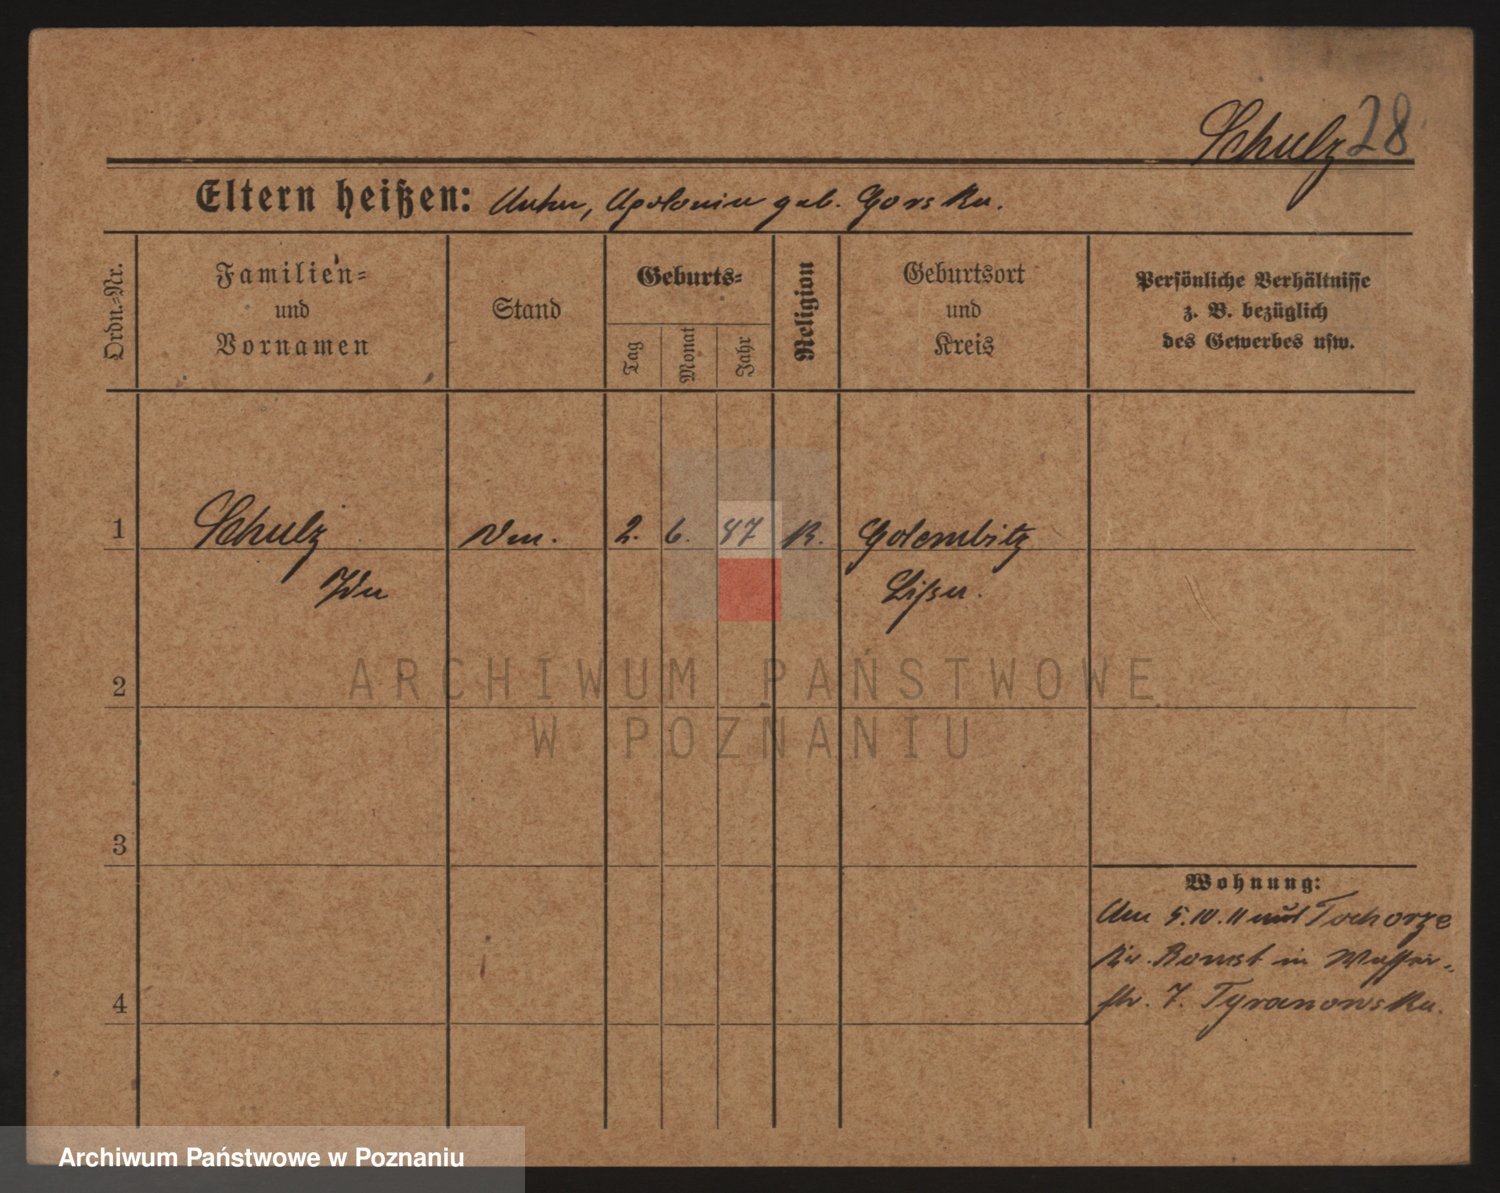 Schulz 28
Eltern heißen: Anton, Apolonia geb. Gorska.
Ordn.=Nr.
Familien=
und
Vornamen
Stand
Geburts=
Tag
Monat
Jahr
Religion
Geburtsort
und
Kreis
Persönliche Verhältnisse
z. B. bezüglich
des Gewerbes usw.
1 Schulz 2. 6. 87 K. Golembitz
Ida Lissa.
2
3
4
Wohnung:
Am 5.10.11 aus Tochorze
Kr. Bomst in Wasser=
str. 7. Tyranowska.
ARCHIWUM PAŃSTWOWE
W POZNANIU
Archiwum Państwowe w Poznaniu